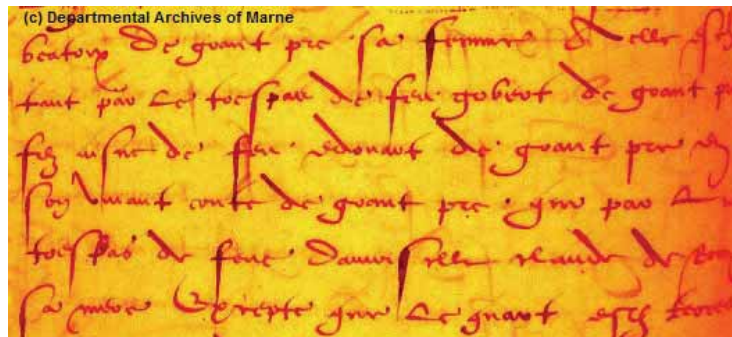 (c) Departmental Archives of Marne
beatrix de grant pre sa femme d elle esch
tant par le trespas de feu gobert de grant p
filz aisne de feu edouart de grant pre en
son vivant conte de grant pre que par le
trespas de feue damoiselle claude de
sa mere Excepte que le quart esch